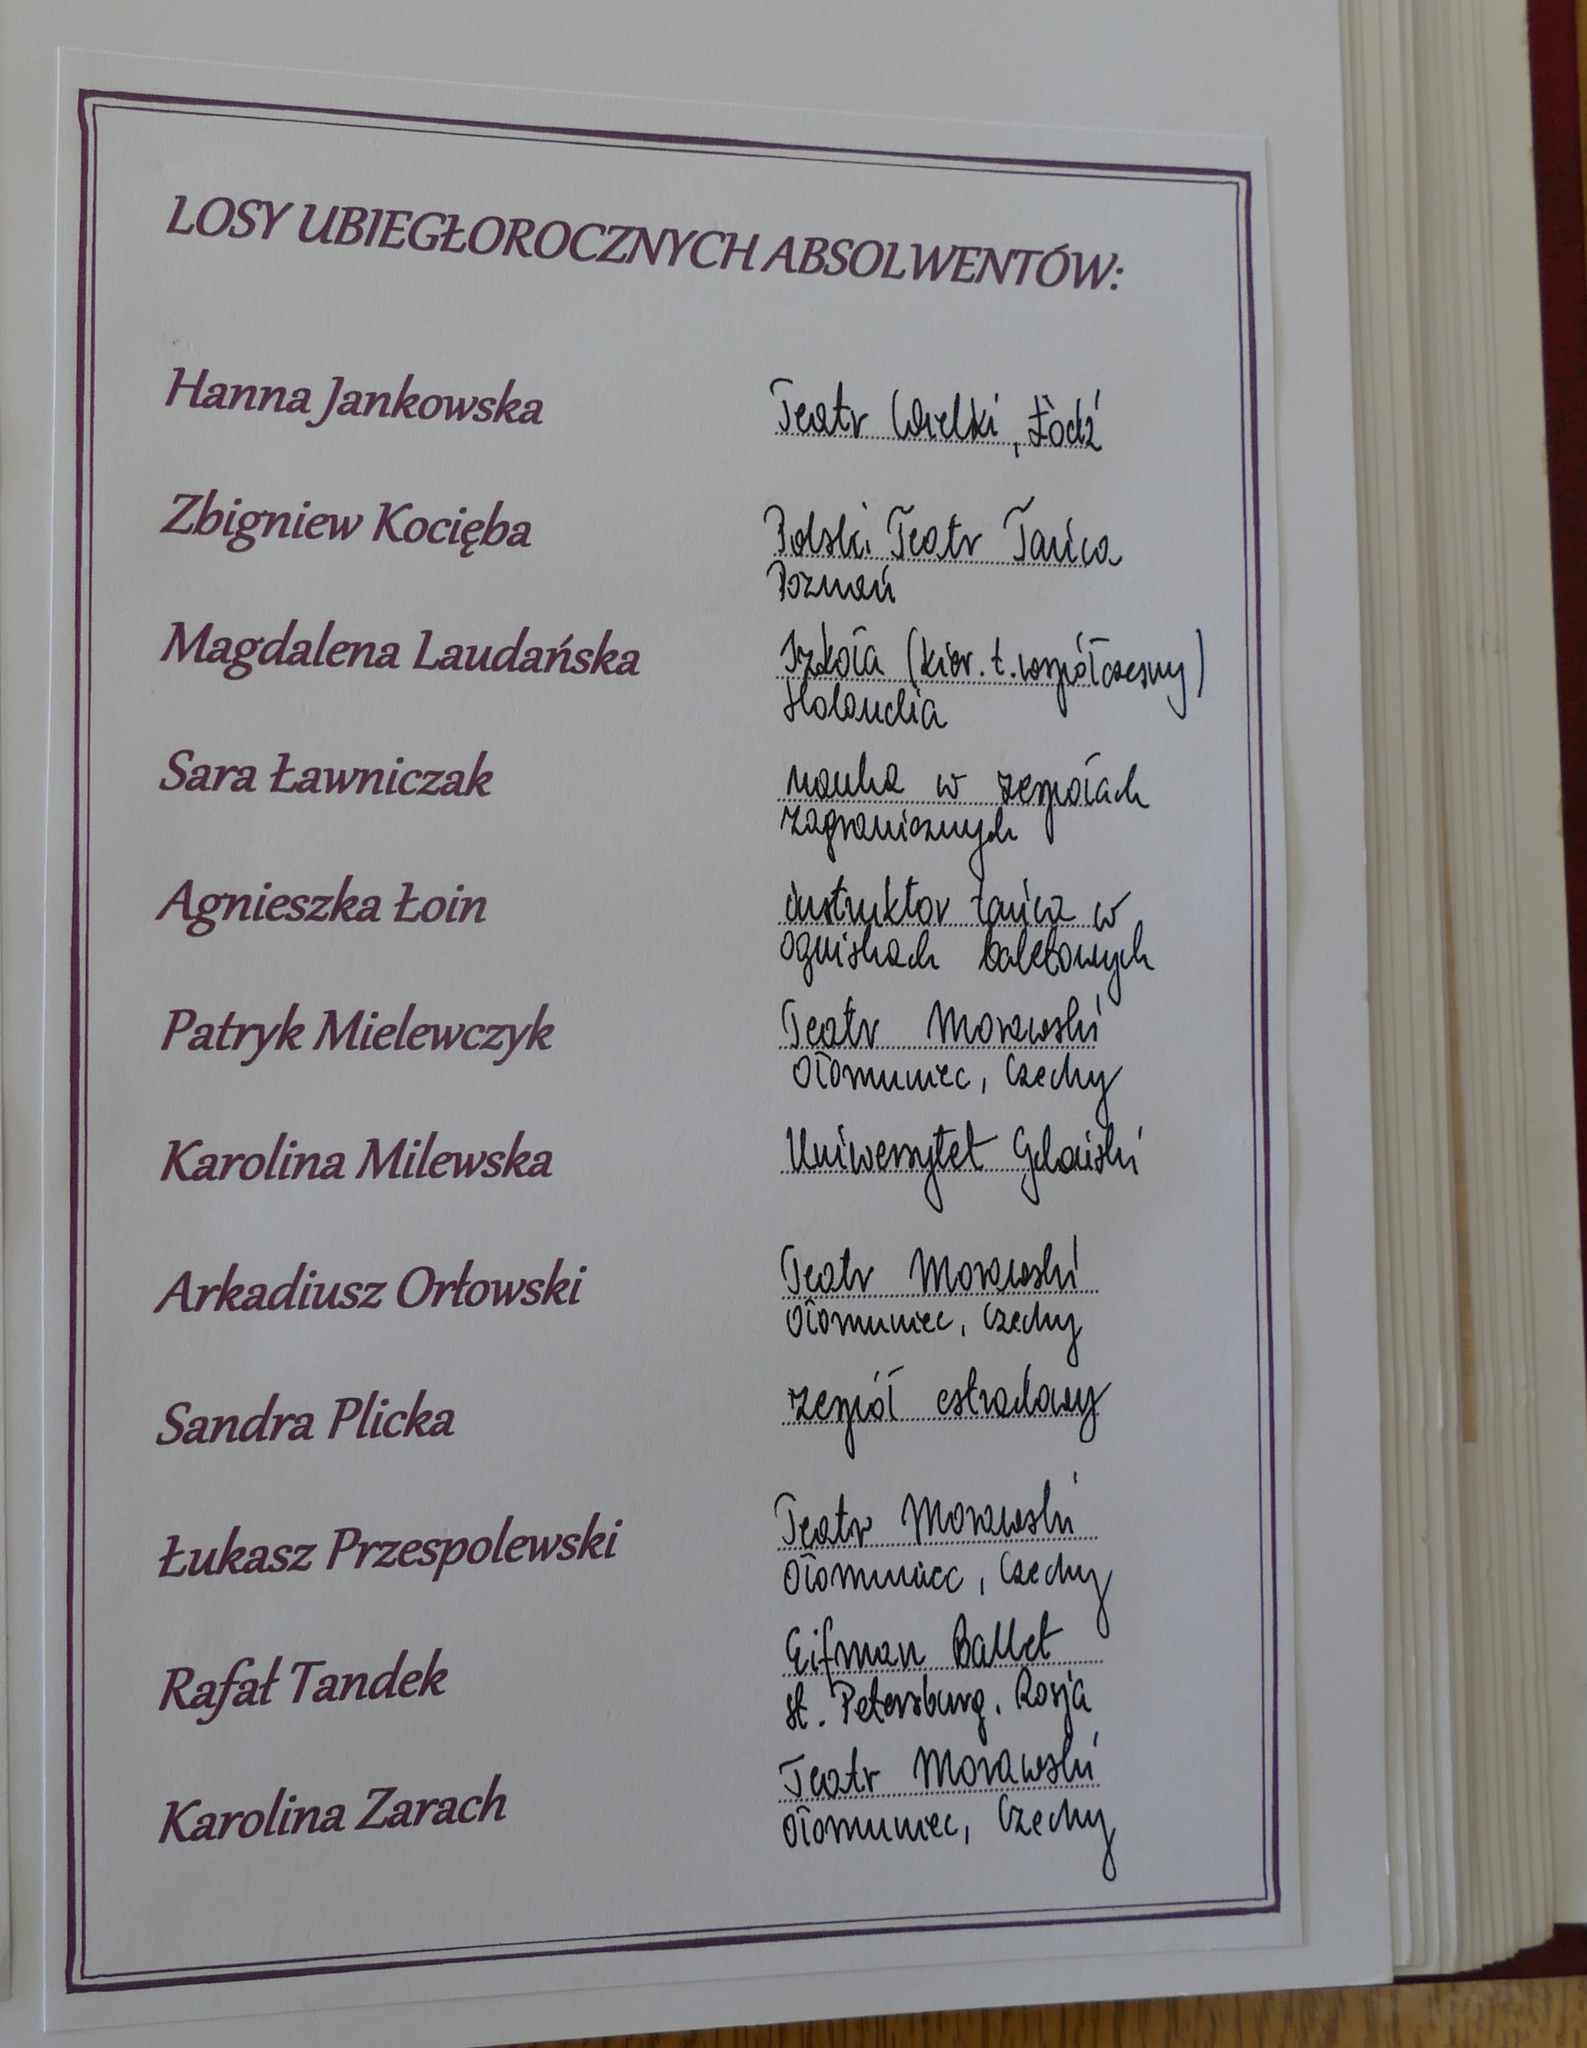 LOSY UBIEGŁOROCZNYCH ABSOLWENTÓW:
Hanna Jankowska Teatr Wielki, Łódź
Zbigniew Kocięba Polski Teatr Tańca
Poznań
Magdalena Laudańska Szkoła (kier. t. współczesny)
Holandia
Sara Ławniczak nauka w zespołach
zagranicznych
Agnieszka Łoin instruktor tańca w
ogniskach baletowych
Patryk Mielewczyk Teatr Morawski
Ołomuniec, Czechy
Karolina Milewska Uniwersytet Gdański
Arkadiusz Orłowski Teatr Morawski
Ołomuniec, Czechy
Sandra Plicka zespół estradowy
Łukasz Przespolewski Teatr Morawski
Ołomuniec, Czechy
Rafał Tandek Eifman Ballet
St. Petersburg, Rosja
Karolina Zarach Teatr Morawski
Ołomuniec, Czechy